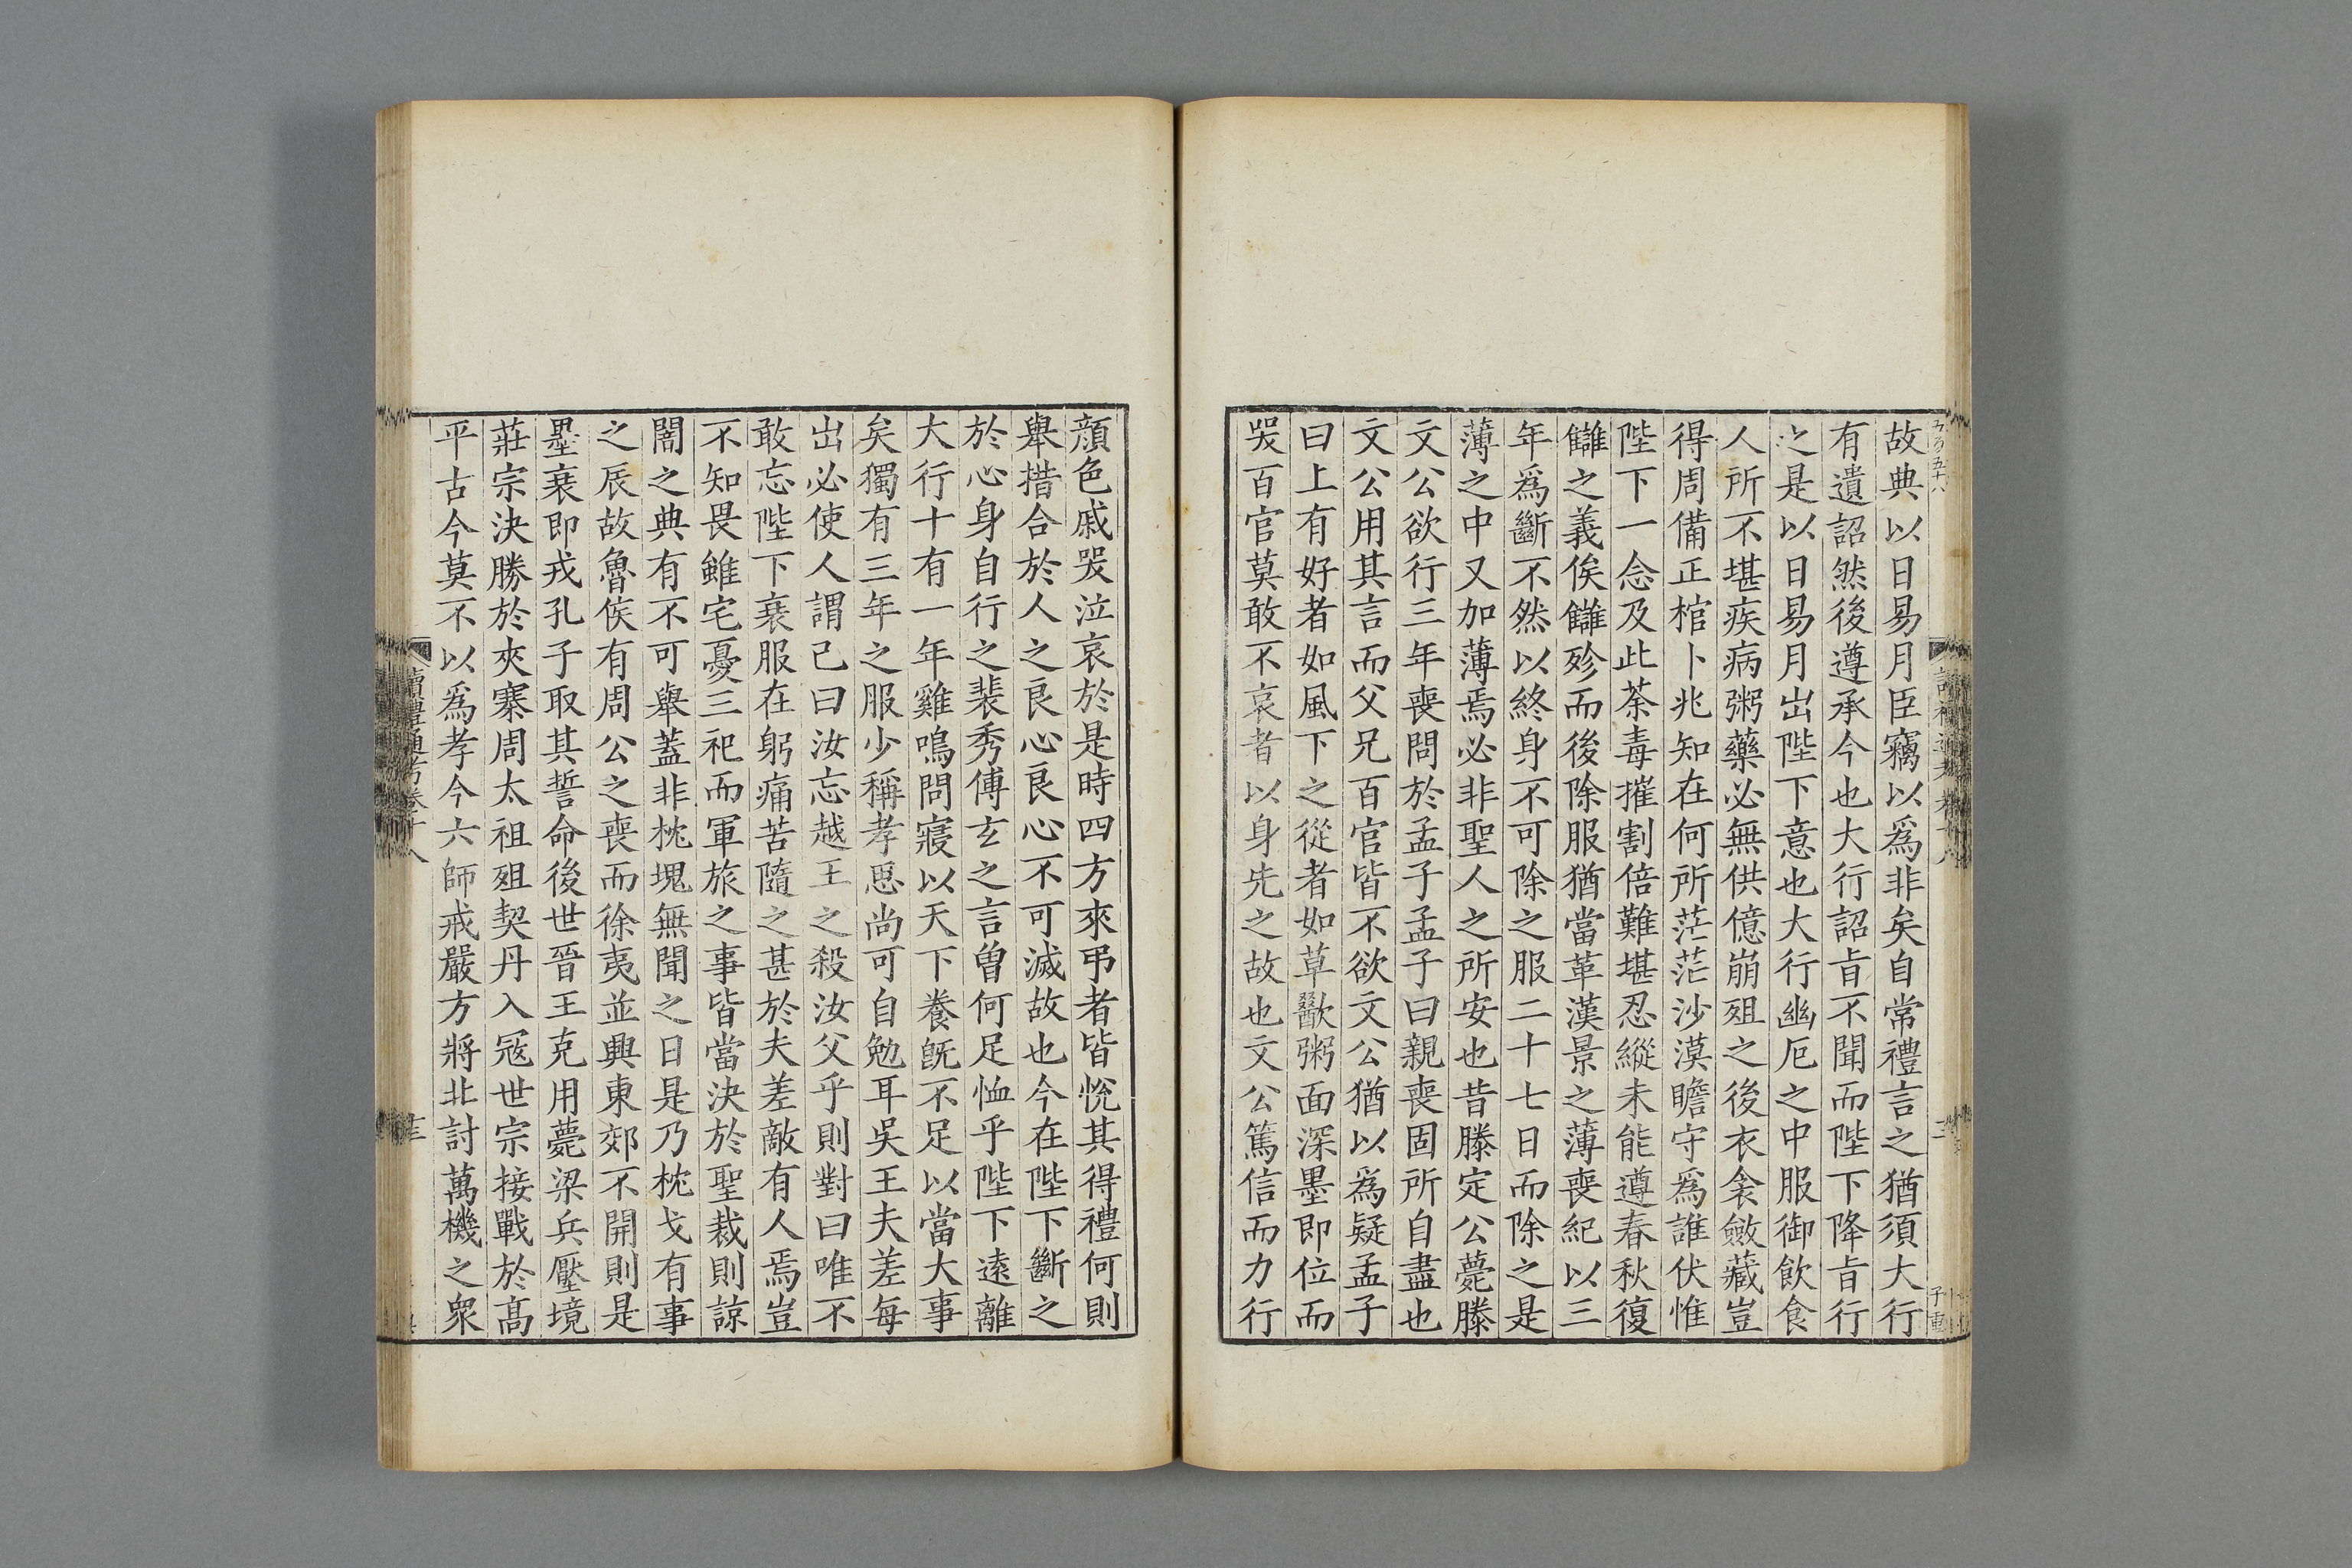 故典以日易月臣竊以爲非矣自常禮言之猶須大行
有遺詔然後遵承今也大行詔㫖不聞而陛下降㫖行
之是以日易月出陛下意也大行幽厄之中服御飲食
人所不堪疾病粥藥必無供億崩殂之後衣衾斂藏豈
得周備正棺卜兆知在何所茫茫沙漠瞻守爲誰伏惟
陛下一念及此荼毒摧割倍難堪忍縱未能遵春秋復
讎之義俟讎殄而後除服猶當革漢景之薄喪紀以三
年爲斷不然以終身不可除之服二十七日而除之是
薄之中又加薄焉必非聖人之所安也昔滕定公薨滕
文公欲行三年喪問於孟子孟子曰親喪固所自盡也
文公用其言而父兄百官皆不欲文公猶以爲疑孟子
曰上有好者如風下之從者如草歠粥面深墨即位而
哭百官莫敢不哀者以身先之故也文公篤信而力行
顔色戚哭泣哀於是時四方來弔者皆悅其得禮何則
舉措合於人之良心良心不可滅故也今在陛下斷之
於心身自行之裴秀傅玄之言曾何足恤乎陛下逺離
大行十有一年雞鳴問寢以天下養旣不足以當大事
矣獨有三年之服少稱孝思尚可自勉耳吳王夫差每
出必使人謂己曰汝忘越王之殺汝父乎則對曰唯不
敢忘陛下衰服在躬痛苦隨之甚於夫差敵有人焉豈
不知畏雖宅憂三祀而軍旅之事皆當決於聖裁則諒
闇之典有不可舉蓋非枕塊無聞之日是乃枕戈有事
之辰故魯侯有周公之喪而徐夷並興東郊不開則是
墨衰即戎孔子取其誓命後世晉王克用薨梁兵壓境
莊宗決勝於夾寨周太祖殂契丹入寇世宗接戰於高
平古今莫不以爲孝今六師戒嚴方將北討萬機之衆
讀禮通考卷十八